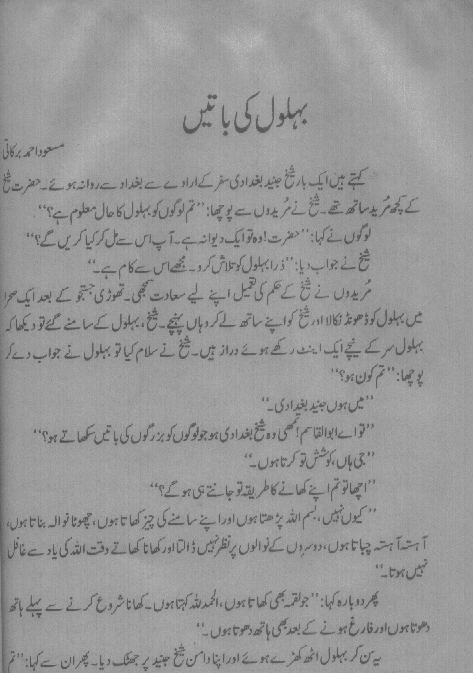 بہلول کی باتیں
مسعود احمد برکاتی
کہتے ہیں ایک بار شیخ جنید بغدادی سفر کے ارادے سے بغداد سے روانہ ہوئے۔ حضرت شیخ
کے کچھ مُرید ساتھ تھے۔ شیخ نے مُریدوں سے پوچھا: ’’تم لوگوں کو بہلول کا حال معلوم ہے؟‘‘
لوگوں نے کہا: ’’حضرت! وہ تو ایک دیوانہ ہے۔ آپ اس سے مل کر کیا کریں گے؟‘‘
شیخ نے جواب دیا: ’’ذرا بہلول کو تلاش کرو۔ مجھے اس سے کام ہے۔‘‘
مُریدوں نے شیخ کے حکم کی تعمیل اپنے لیے سعادت سمجھی۔ تھوڑی جستجو کے بعد ایک صحرا
میں بہلول کو ڈھونڈ نکالا اور شیخ کو اپنے ساتھ لے کر وہاں پہنچے۔ شیخ، بہلول کے سامنے گئے تو دیکھا کہ
بہلول سر کے نیچے ایک اینٹ رکھے ہوئے دراز ہیں۔ شیخ نے سلام کیا تو بہلول نے جواب دے کر
پوچھا: ’’تم کون ہو؟‘‘
’’میں ہوں جنید بغدادی۔‘‘
’’تو اے ابوالقاسم! تمھی وہ شیخ بغدادی ہو جو لوگوں کو بزرگوں کی باتیں سکھاتے ہو؟‘‘
’’جی ہاں، کوشش تو کرتا ہوں۔‘‘
’’اچھا تو تم اپنے کھانے کا طریقہ تو جانتے ہی ہو گے؟‘‘
’’کیوں نہیں، بسم اللہ پڑھتا ہوں اور اپنے سامنے کی چیز کھاتا ہوں، چھوٹا نوالہ بناتا ہوں،
آہستہ آہستہ چباتا ہوں، دوسروں کے نوالوں پر نظر نہیں ڈالتا اور کھانا کھاتے وقت اللہ کی یاد سے غافل
نہیں ہوتا۔‘‘
پھر دوبارہ کہا: ’’جو لقمہ بھی کھاتا ہوں، الحمدللہ کہتا ہوں۔ کھانا شروع کرنے سے پہلے ہاتھ
دھوتا ہوں اور فارغ ہونے کے بعد بھی ہاتھ دھوتا ہوں۔‘‘
یہ سن کر بہلول اٹھ کھڑے ہوئے اور اپنا دامن شیخ جنید پر جھٹک دیا۔ پھر ان سے کہا: ’’تم